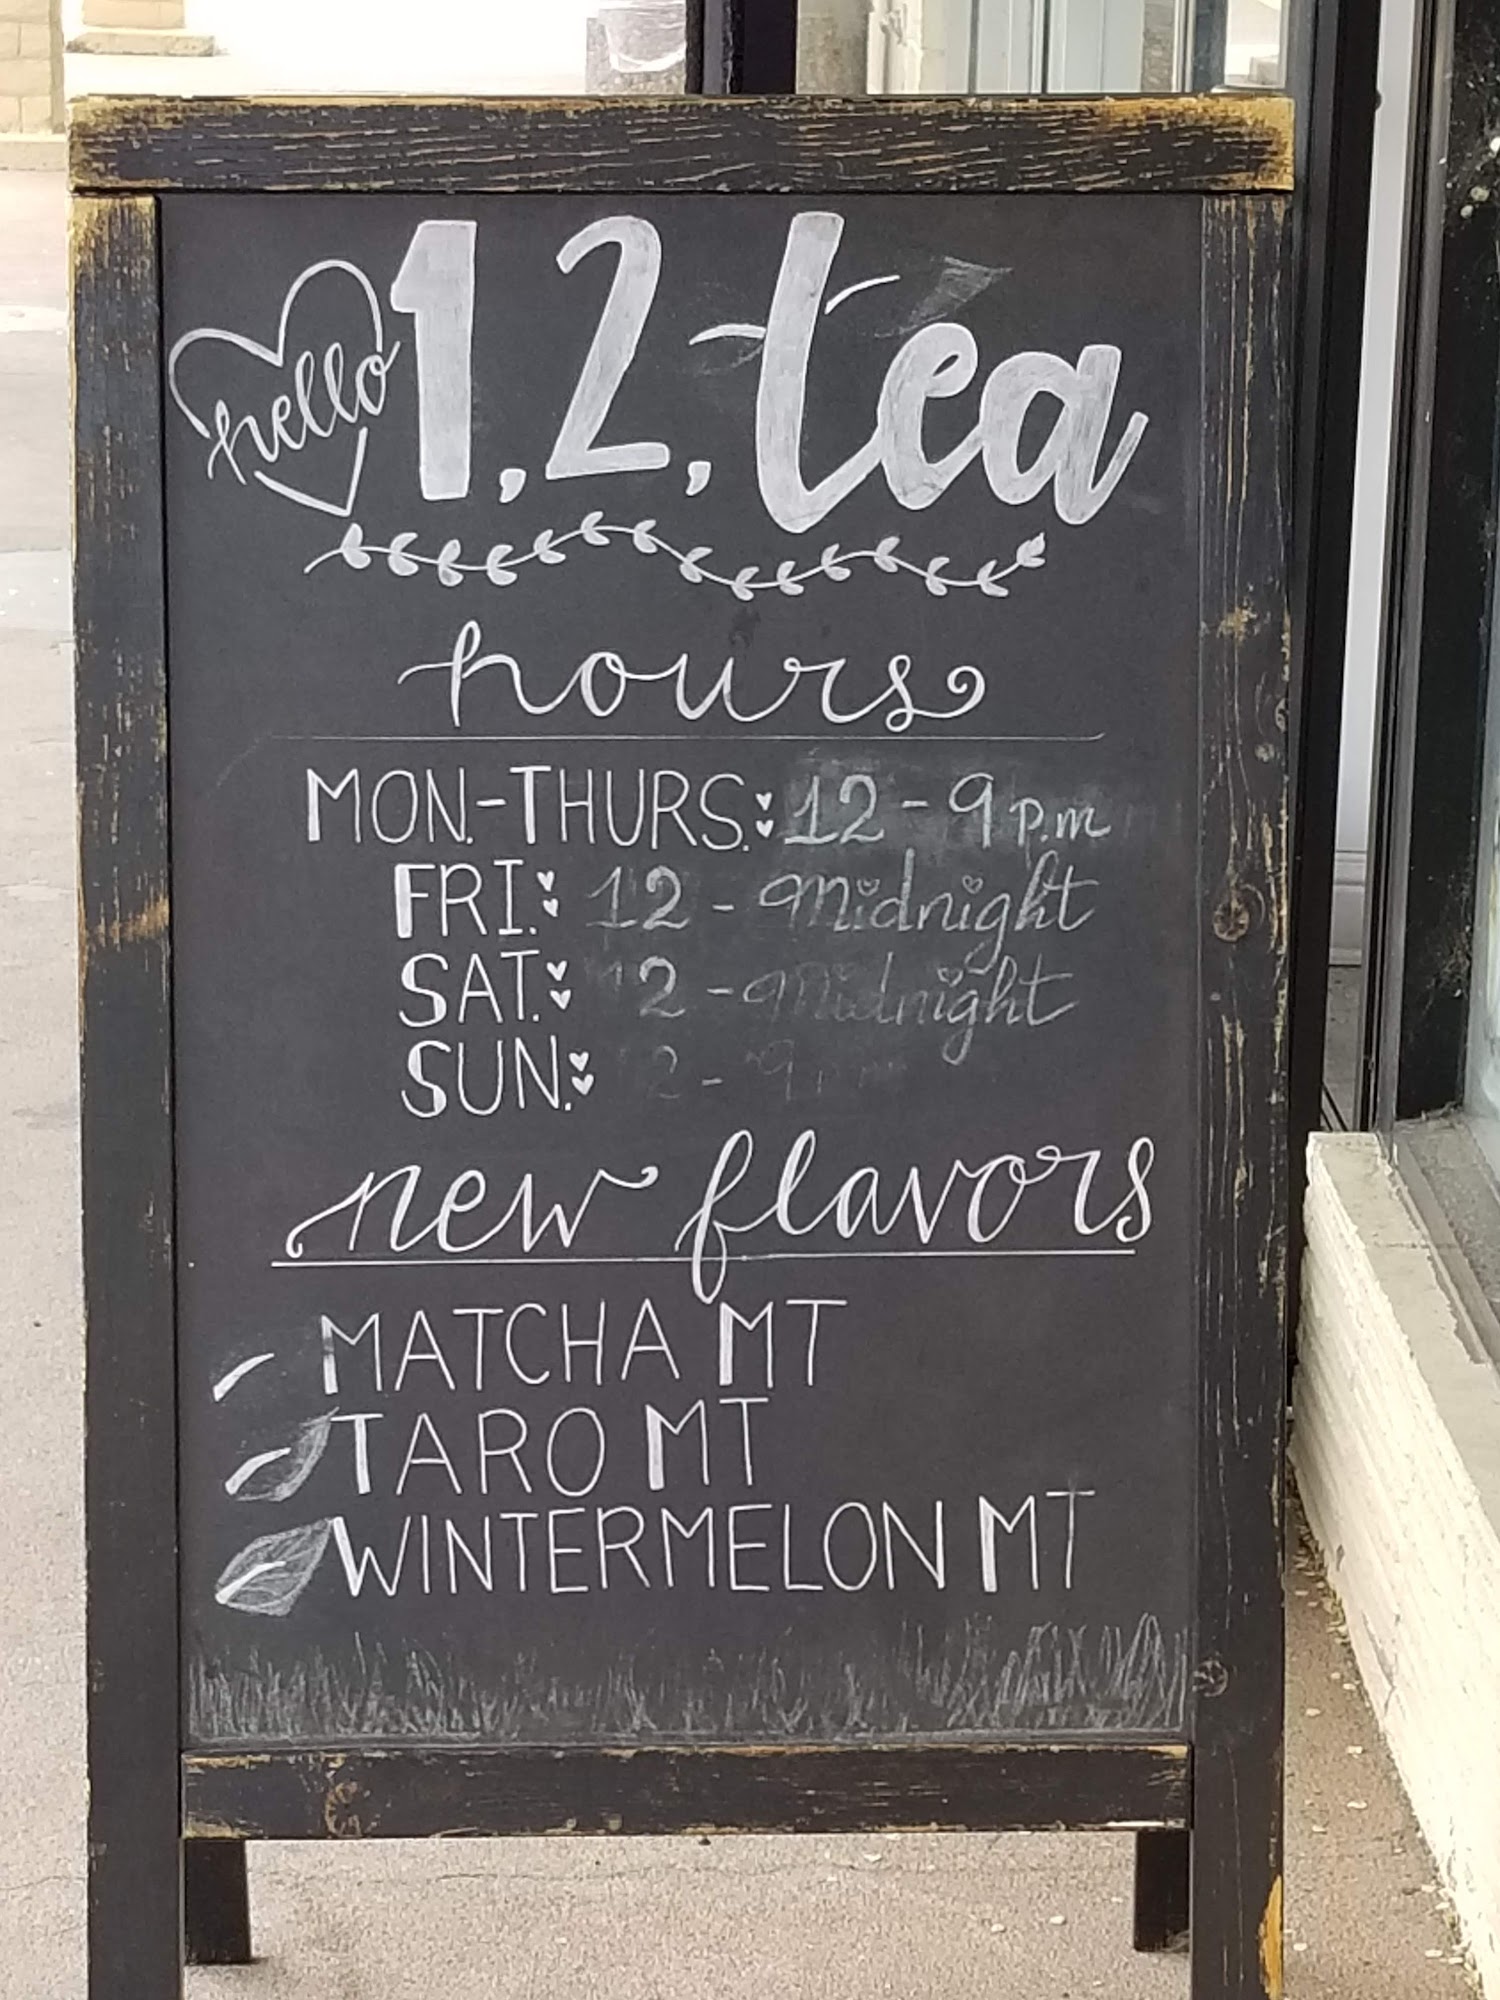 hello 1, 2, tea
hours
MON.-THURS.: 12 - 9 p.m
FRI.: 12 - Midnight
SAT.: 12 - Midnight
SUN.: 12 - 9 pm
new flavors
MATCHA MT
TARO MT
WINTERMELON MT